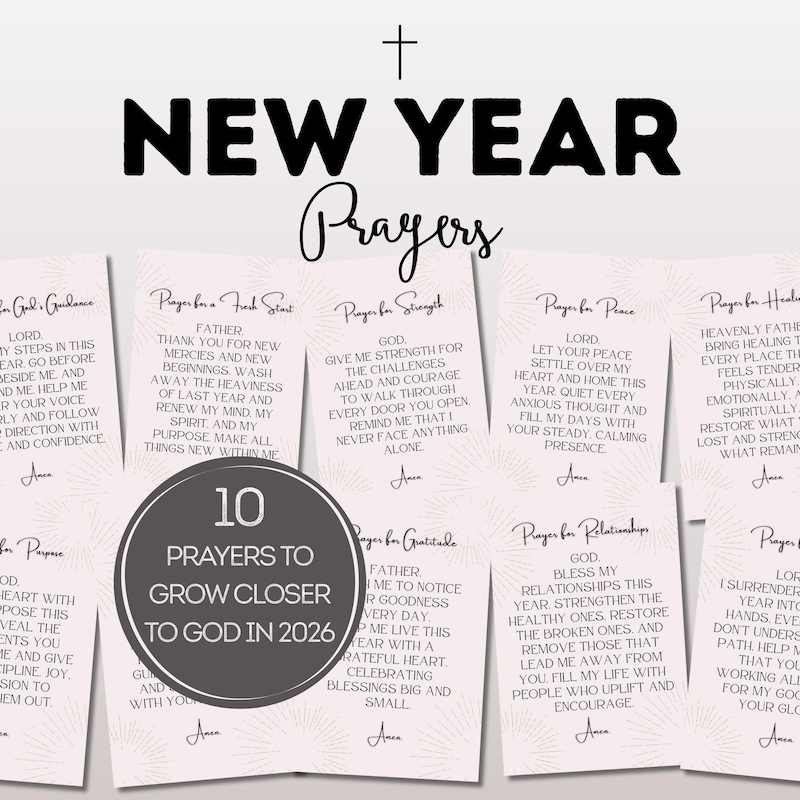 NEW YEAR
Prayers
for God's Guidance
LORD,
MY STEPS IN THIS
YEAR. GO BEFORE
BESIDE ME, AND
ME. HELP ME
YOUR VOICE
AND FOLLOW
DIRECTION WITH
AND CONFIDENCE.
Amen.
Prayer for a Fresh Start
FATHER,
THANK YOU FOR NEW
MERCIES AND NEW
BEGINNINGS. WASH
AWAY THE HEAVINESS
OF LAST YEAR AND
RENEW MY MIND, MY
SPIRIT, AND MY
PURPOSE. MAKE ALL
THINGS NEW WITHIN ME.
Prayer for Strength
GOD,
GIVE ME STRENGTH FOR
THE CHALLENGES
AHEAD AND COURAGE
TO WALK THROUGH
EVERY DOOR YOU OPEN.
REMIND ME THAT I
NEVER FACE ANYTHING
ALONE.
Amen.
Prayer for Peace
LORD,
LET YOUR PEACE
SETTLE OVER MY
HEART AND HOME THIS
YEAR. QUIET EVERY
ANXIOUS THOUGHT AND
FILL MY DAYS WITH
YOUR STEADY, CALMING
PRESENCE.
Amen.
Prayer for
HEAVENLY
BRING HEALING
EVERY PLACE
FEELS TENDER
PHYSICALLY,
EMOTIONALLY,
SPIRITUALLY.
RESTORE WHAT
LOST AND
WHAT
Amen.
for Purpose
HEART WITH
THIS
THE
YOU
ME AND GIVE
JOY,
TO
OUT.
10
PRAYERS TO
GROW CLOSER
TO GOD IN 2026
WITH
Amen.
Prayer for Gratitude
FATHER,
ME TO NOTICE
GOODNESS
EVERY DAY.
ME LIVE THIS
YEAR WITH A
GRATEFUL HEART,
CELEBRATING
BLESSINGS BIG AND
SMALL.
Amen.
Prayer for Relationships
GOD,
BLESS MY
RELATIONSHIPS THIS
YEAR. STRENGTHEN THE
HEALTHY ONES, RESTORE
THE BROKEN ONES, AND
REMOVE THOSE THAT
LEAD ME AWAY FROM
YOU. FILL MY LIFE WITH
PEOPLE WHO UPLIFT AND
ENCOURAGE.
Amen.
Prayer
I SURRENDER
YEAR INTO
HANDS.
DON'T
PATH, HELP
THAT
WORKING ALL
FOR MY
YOUR
Amen.